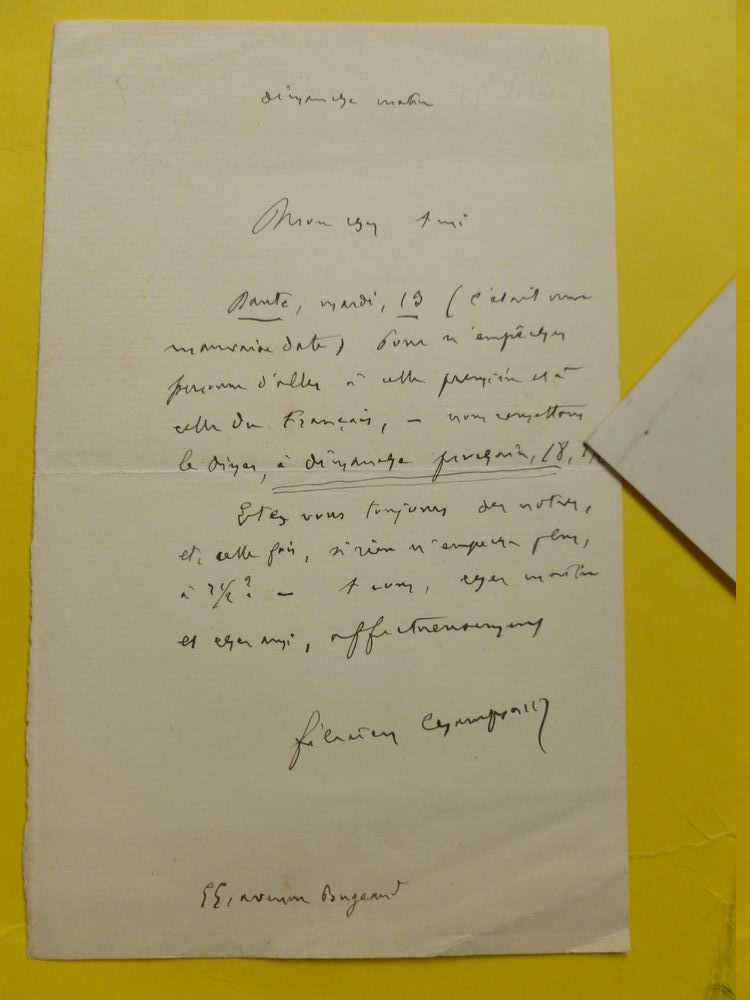 dimanche matin
Mon cher Ami
Dante, mardi, 13 (c'était une
mauvaise date) Pour n'empêcher
personne d'aller à cette première et à
celle du Français, — nous remettons
le dîner, à dimanche prochain, 18,
Êtes vous toujours des nôtres,
et, cette fois, si rien n'empêche plus,
à 7 1/2? — A vous, cher maître
et cher ami, affectueusement
Félicien Champsaur
55, avenue Bugeaud